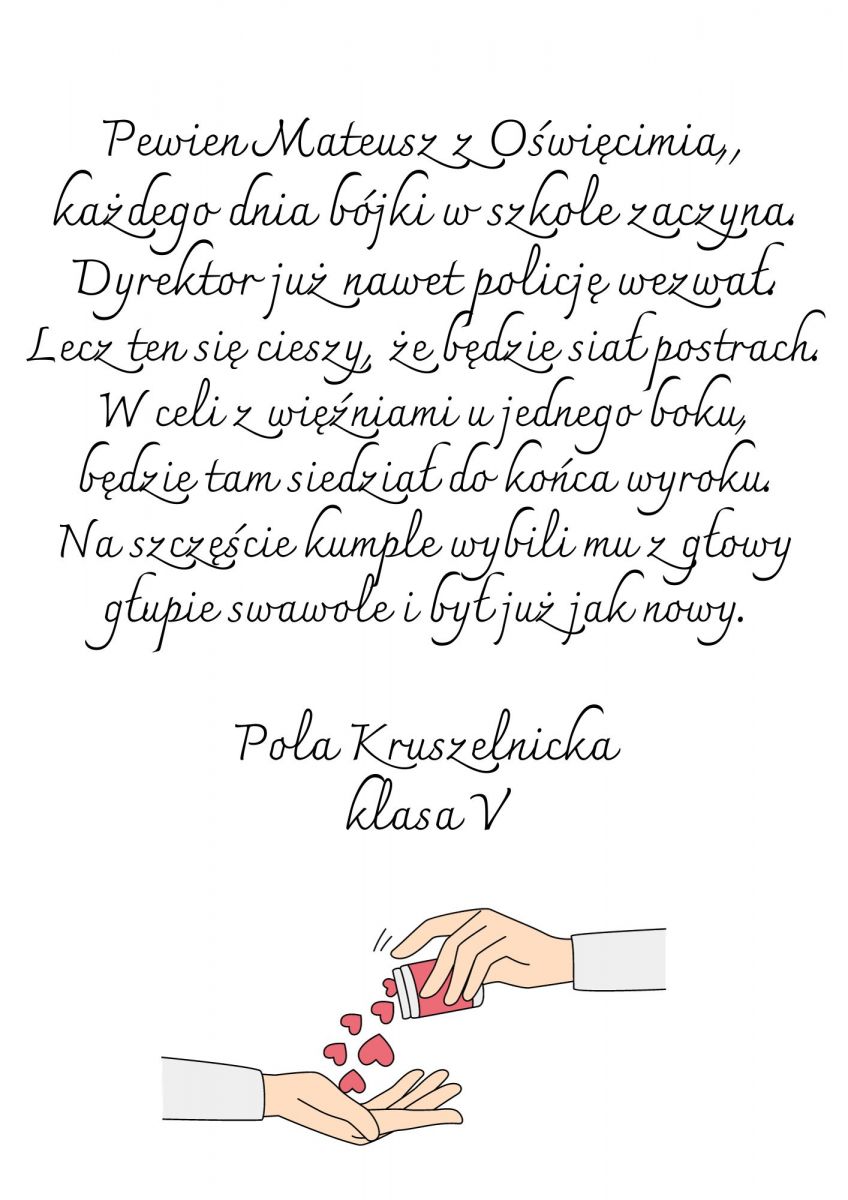 Pewien Mateusz z Oświęcimia,,
każdego dnia bójki w szkole zaczyna.
Dyrektor już nawet policję wezwał.
Lecz ten się cieszy, że będzie siał postrach.
W celi z więźniami u jednego boku,
będzie tam siedział do końca wyroku.
Na szczęście kumple wybili mu z głowy
głupie swawole i był już jak nowy.
Pola Kruszelnicka
klasa V